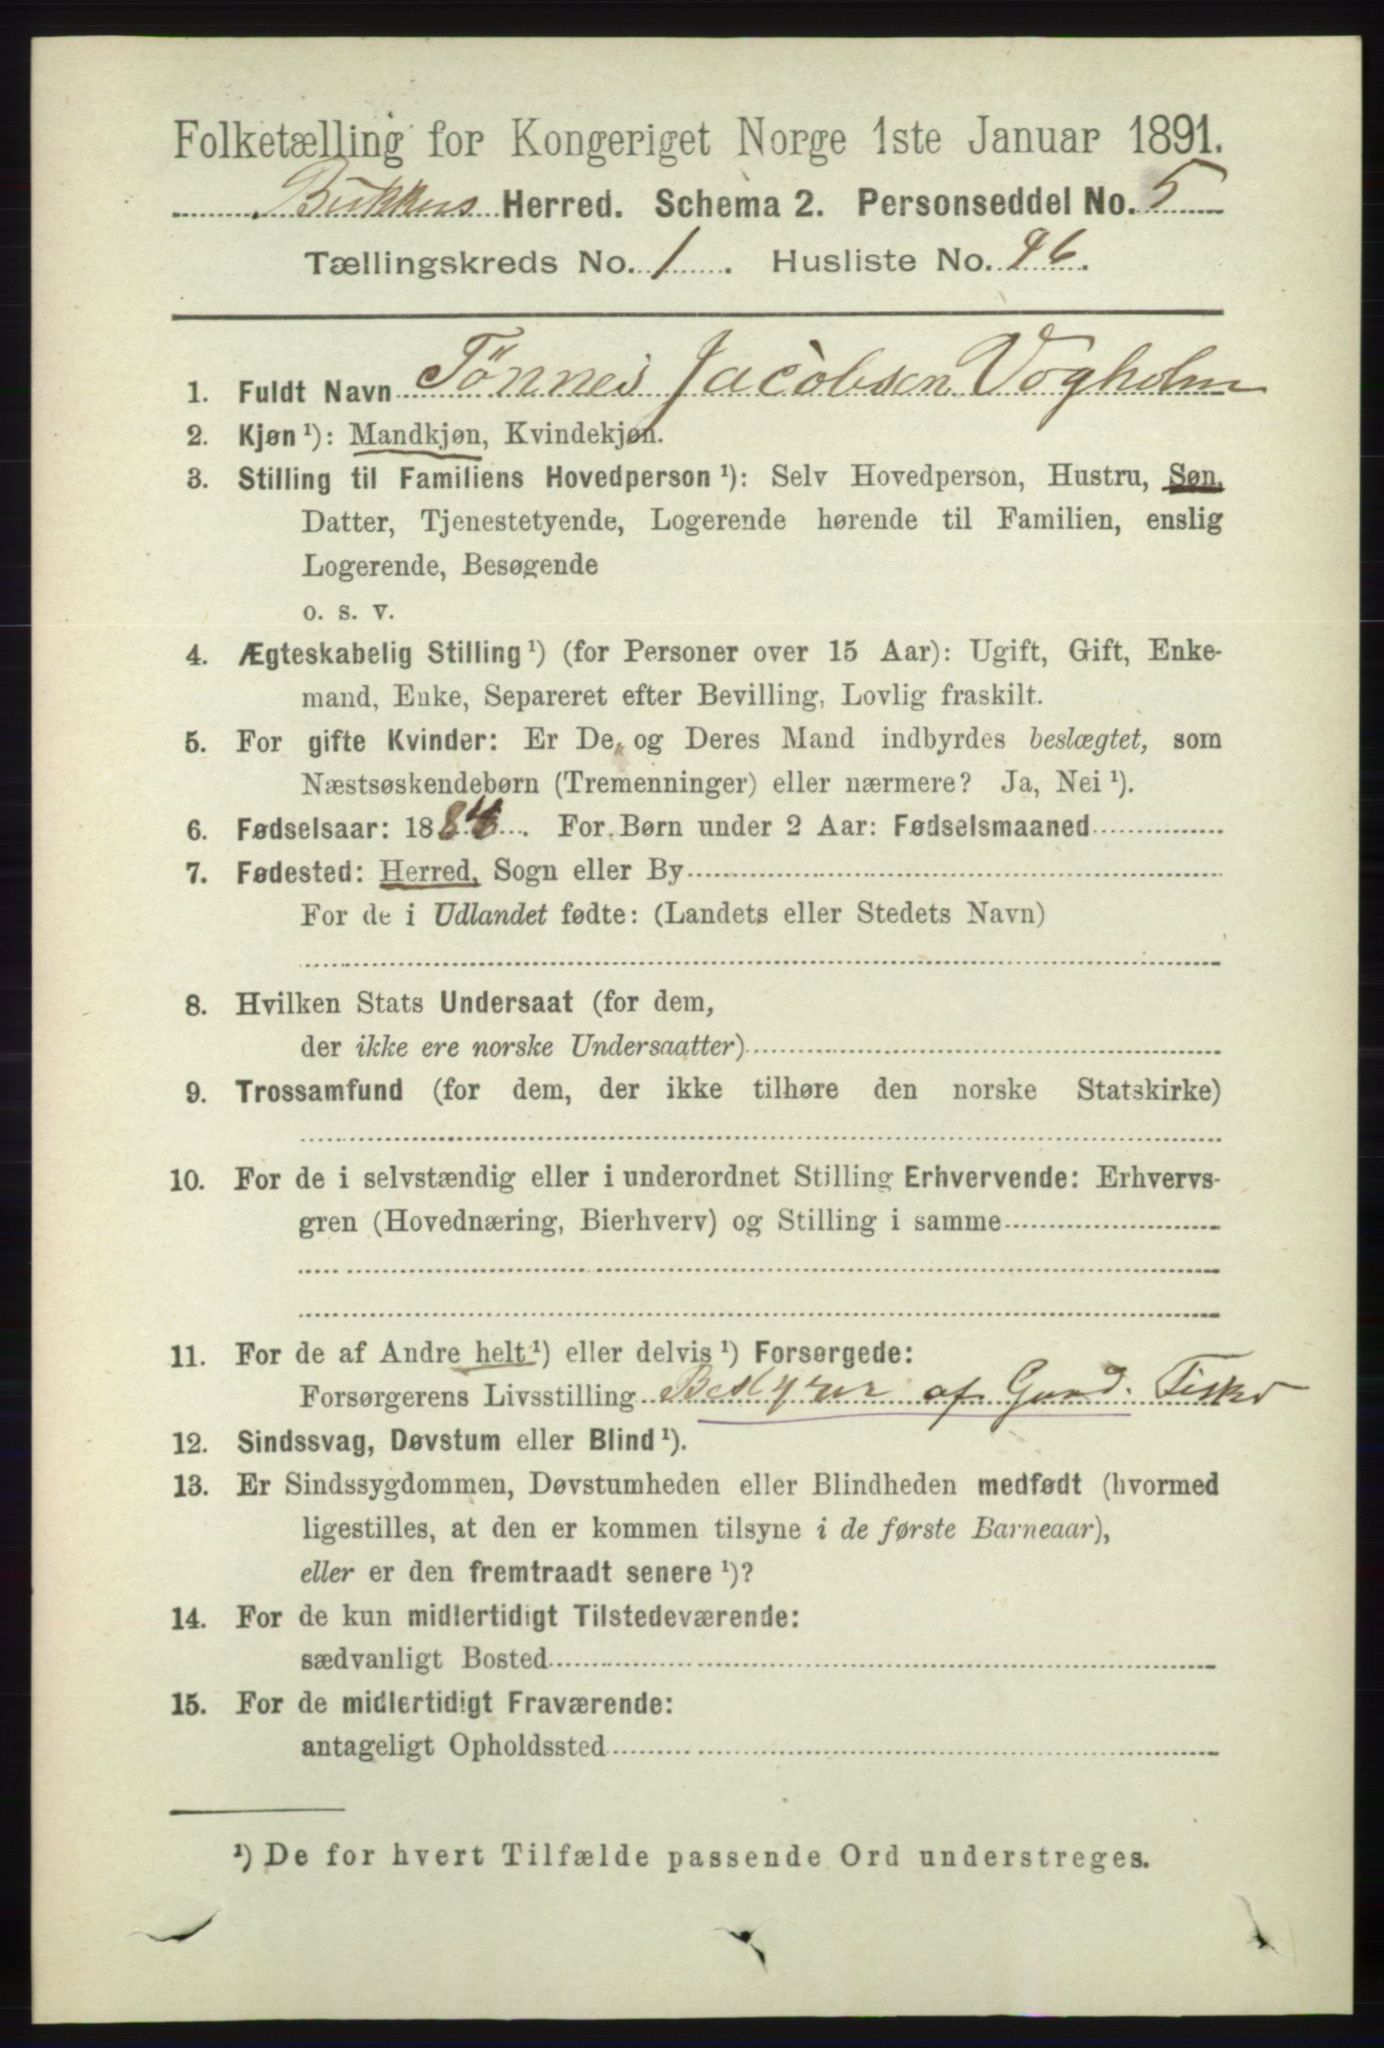 Folketælling for Kongeriget Norge 1ste Januar 1891.
Bukkens Herred. Schema 2. Personseddel No. 5
Tællingskreds No. 1. Husliste No. 96.
1. Fuldt Navn Tönnes Jacobsen Vogholm
2. Kjøn ¹): Mandkjøn, Kvindekjøn.
3. Stilling til Familiens Hovedperson ¹): Selv Hovedperson, Hustru, Søn,
Datter, Tjenestetyende, Logerende hørende til Familien, enslig
Logerende, Besøgende
o. s. v.
4. Ægteskabelig Stilling ¹) (for Personer over 15 Aar): Ugift, Gift, Enke-
mand, Enke, Separeret efter Bevilling, Lovlig fraskilt.
5. For gifte Kvinder: Er De og Deres Mand indbyrdes beslægtet, som
Næstsøskendebørn (Tremenninger) eller nærmere? Ja, Nei ¹).
6. Fødselsaar: 18 . For Børn under 2 Aar: Fødselsmaaned
7. Fødested: Herred, Sogn eller By
For de i Udlandet fødte: (Landets eller Stedets Navn)
8. Hvilken Stats Undersaat (for dem,
der ikke ere norske Undersaatter)
9. Trossamfund (for dem, der ikke tilhøre den norske Statskirke)
10. For de i selvstændig eller i underordnet Stilling Erhvervende: Erhvervs-
gren (Hovednæring, Bierhverv) og Stilling i samme
11. For de af Andre helt ¹) eller delvis ¹) Forsørgede:
Forsørgerens Livsstilling Bestyrer af Gaard. Fisker
12. Sindssvag, Døvstum eller Blind ¹).
13. Er Sindssygdommen, Døvstumheden eller Blindheden medfødt (hvormed
ligestilles, at den er kommen tilsyne i de første Barneaar),
eller er den fremtraadt senere ¹)?
14. For de kun midlertidigt Tilstedeværende:
sædvanligt Bosted
15. For de midlertidigt Fraværende:
antageligt Opholdssted
¹) De for hvert Tilfælde passende Ord understreges.